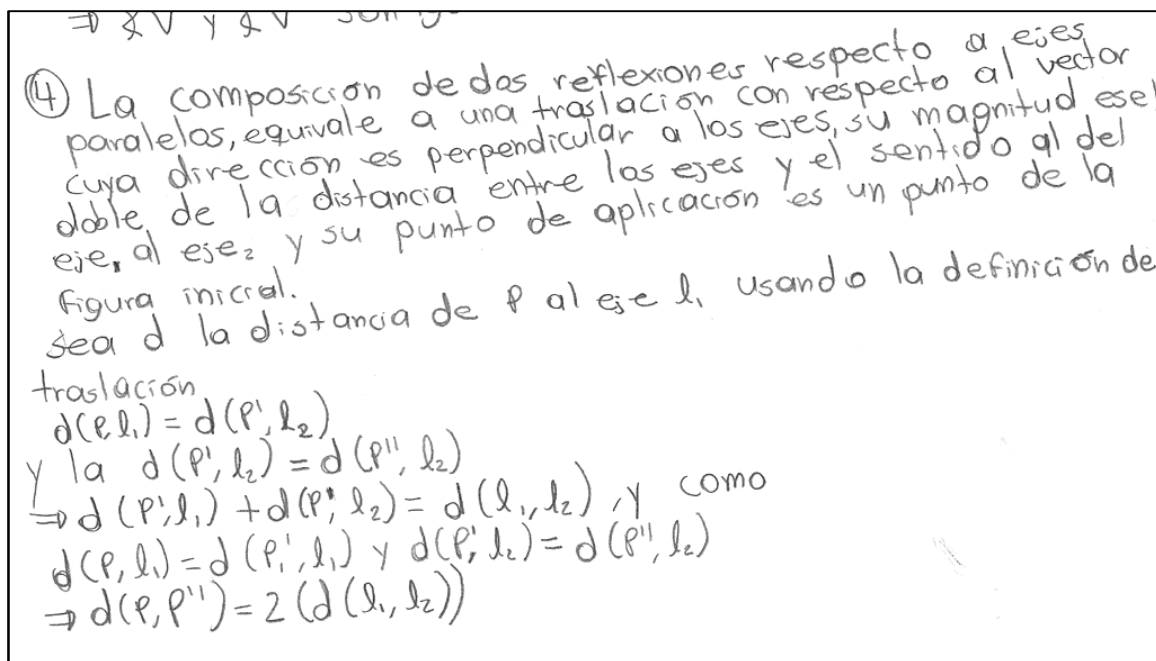 ⇒ ∢ V y ∢ V son
④ La composición de dos reflexiones respecto a ejes
paralelos, equivale a una traslación con respecto al vector
cuya dirección es perpendicular a los ejes, su magnitud es el
doble de la distancia entre los ejes y el sentido al del
eje₁ al eje₂ y su punto de aplicación es un punto de la
figura inicial.
sea d la distancia de P al eje l₁ usando la definición de
traslación
d(P,l₁) = d(P', l₂)
y la d(P', l₂) = d(P'', l₂)
⇒ d(P',l₁) + d(P', l₂) = d(l₁, l₂) , y como
d(P, l₁) = d(P₁', l₁) y d(P', l₂) = d(P'', l₂)
⇒ d(P, P'') = 2(d(l₁, l₂))